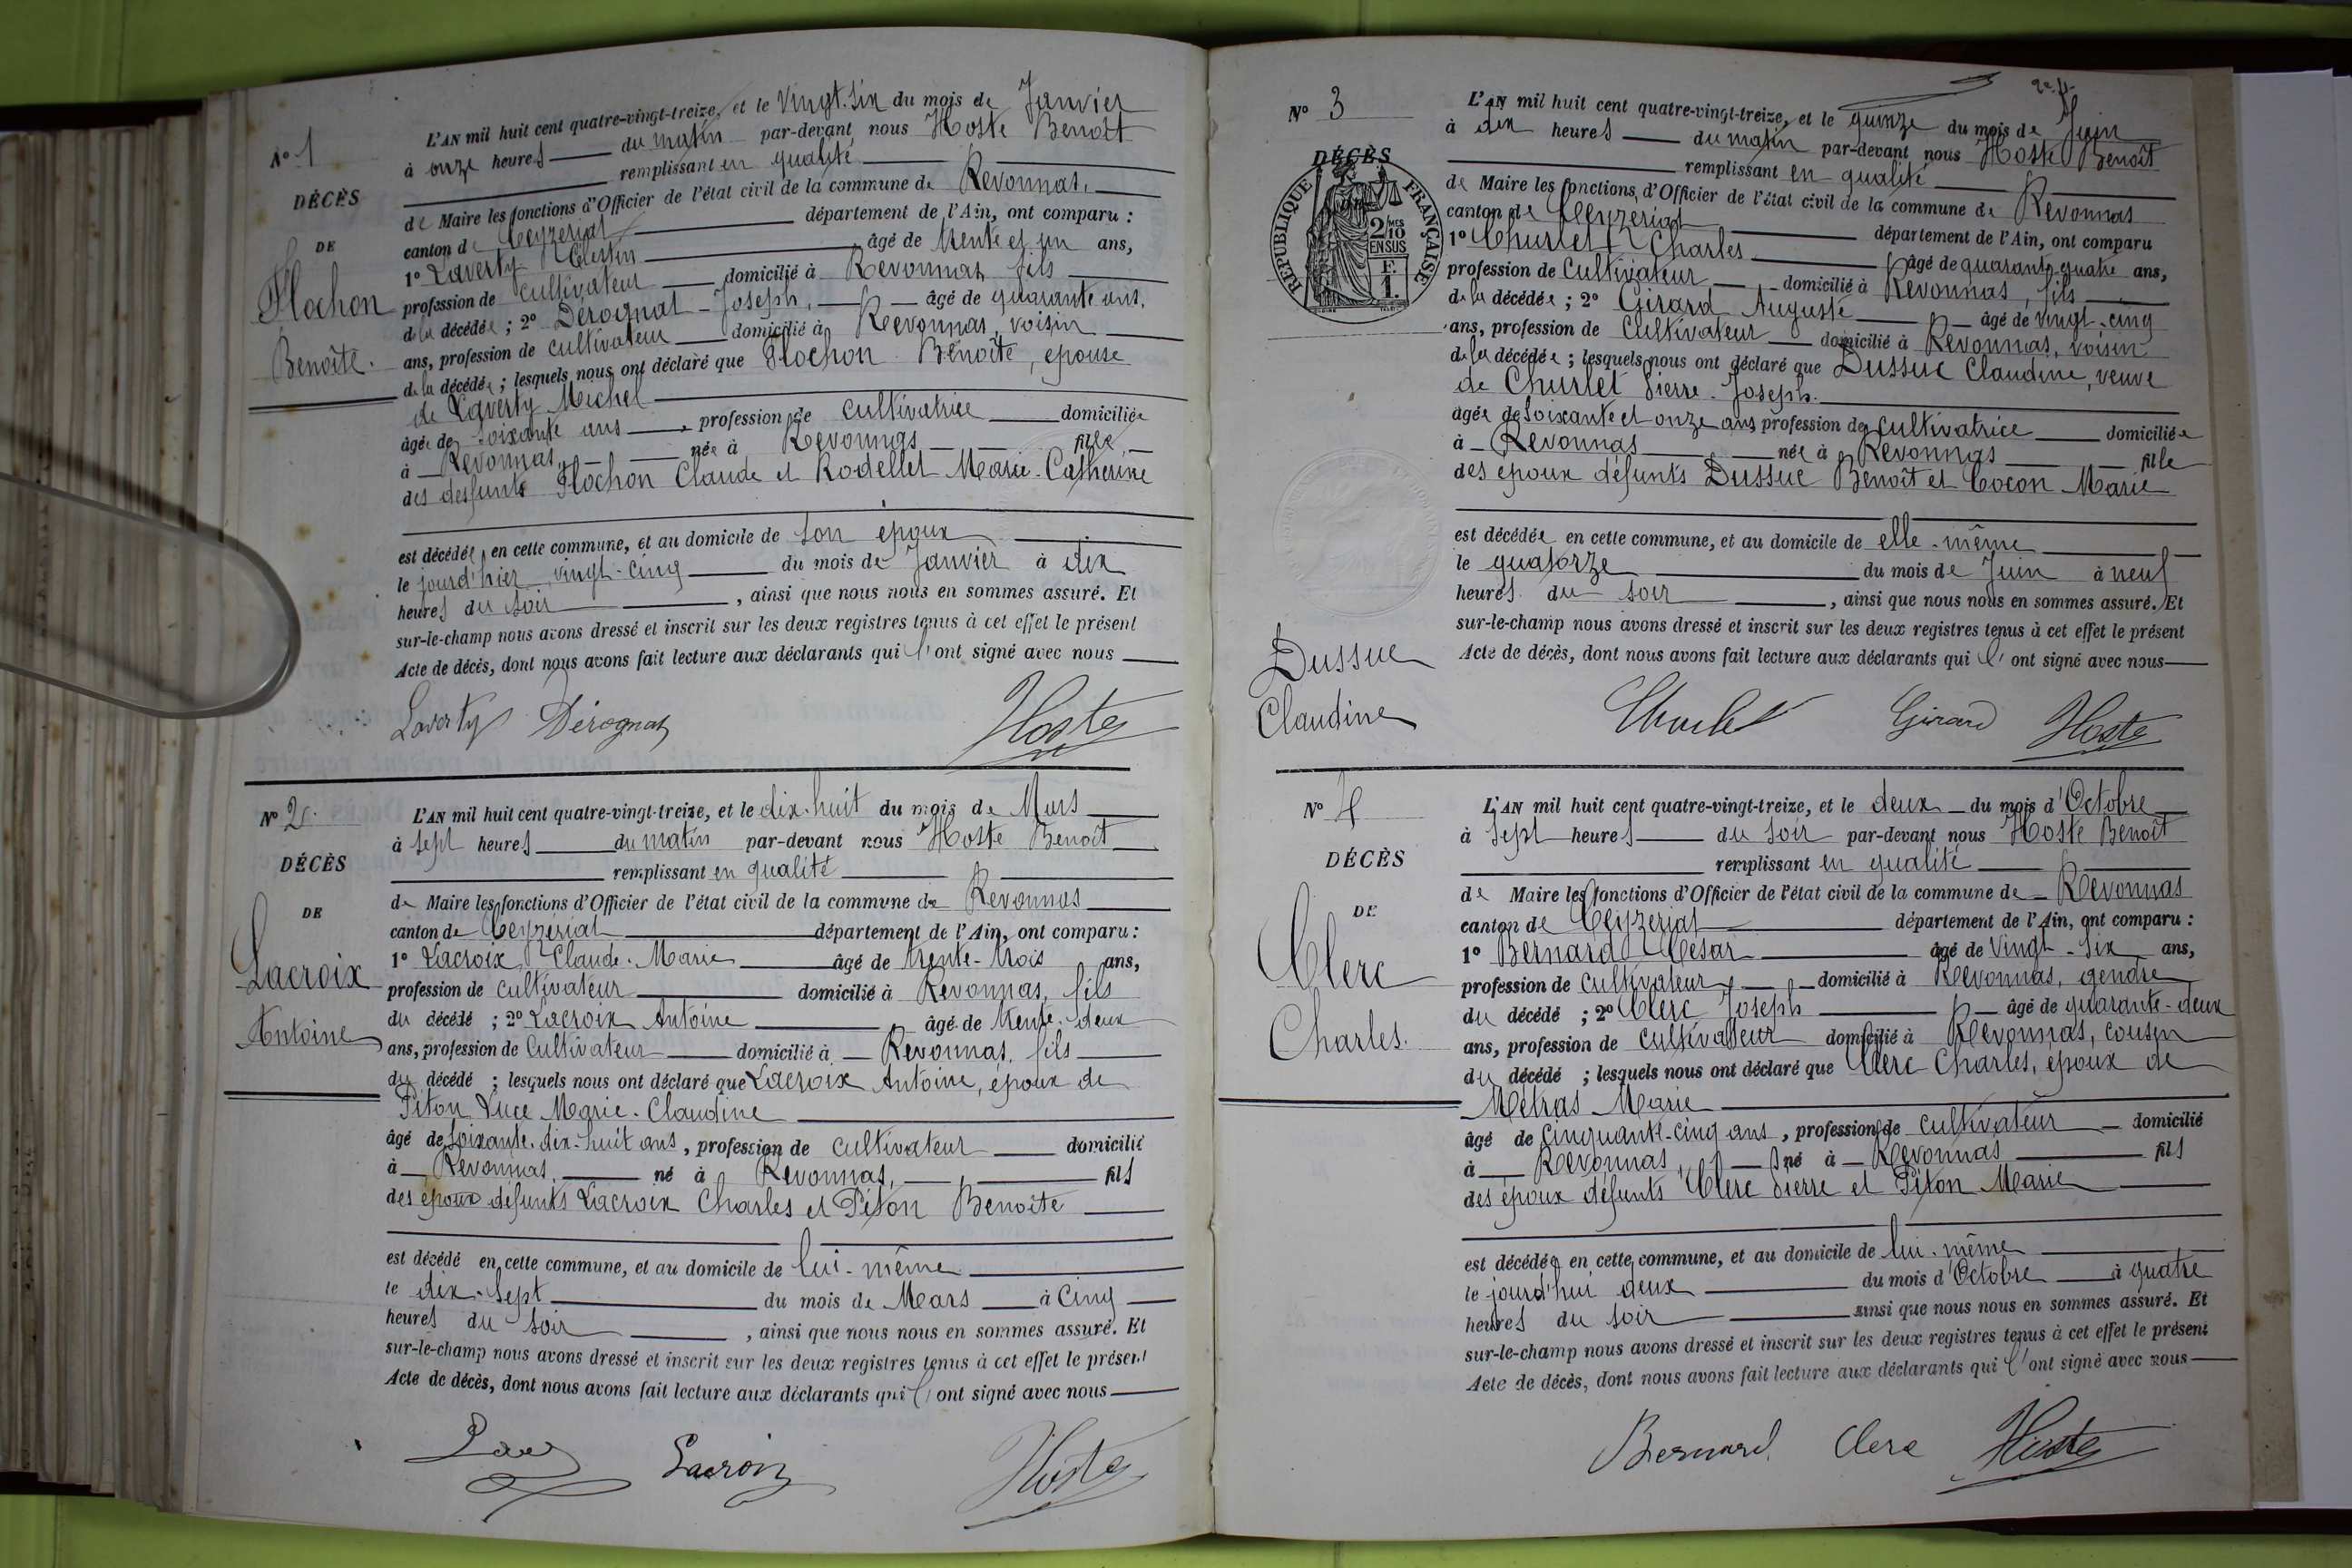 N° 1
DÉCÈS
DE
Flochon
Benoîte.
L'AN mil huit cent quatre-vingt-treize, et le Vingt-six du mois de Janvier
à onze heures du matin par-devant nous Hoste Benoît
remplissant en qualité
de Maire les fonctions d'Officier de l'état civil de la commune de Revonnas,
canton de Ceyzériat département de l'Ain, ont comparu :
1° Laverty Célestin âgé de trente et un ans,
profession de cultivateur domicilié à Revonnas, fils
de la décédée ; 2° Dérognat Joseph, âgé de quarante ans,
ans, profession de cultivateur domicilié à Revonnas, voisin
de la décédée ; lesquels nous ont déclaré que Flochon Benoîte, épouse
de Laverty Michel
âgée de soixante ans, profession de cultivatrice domiciliée
à Revonnas, née à Revonnas fille
des desfunts Flochon Claude et Rodellet Marie-Catherine
est décédée, en cette commune, et au domicile de son époux
le jourd'hier vingt-cinq du mois de Janvier à dix
heures du soir, ainsi que nous nous en sommes assuré. Et
sur-le-champ nous avons dressé et inscrit sur les deux registres tenus à cet effet le présent
Acte de décès, dont nous avons fait lecture aux déclarants qui l'ont signé avec nous
Laverty Dérognat Hoste
N° 2.
DÉCÈS
DE
Lacroix
Antoine
L'AN mil huit cent quatre-vingt-treize, et le dix-huit du mois de Mars
à sept heures du matin par-devant nous Hoste Benoît
remplissant en qualité
de Maire les fonctions d'Officier de l'état civil de la commune de Revonnas
canton de Ceyzériat département de l'Ain, ont comparu :
1° Lacroix Claude-Marie âgé de trente-trois ans,
profession de cultivateur domicilié à Revonnas, fils
du décédé ; 2° Lacroix Antoine âgé de trente-deux
ans, profession de Cultivateur domicilié à Revonnas, fils
du décédé ; lesquels nous ont déclaré que Lacroix Antoine, époux de
Piton Luce Marie-Claudine
âgé de soixante-dix-huit ans, profession de cultivateur domicilié
à Revonnas, né à Revonnas, fils
des époux défunts Lacroix Charles et Piton Benoîte
est décédé en cette commune, et au domicile de lui-même
le dix-sept du mois de Mars à cinq
heures du soir, ainsi que nous nous en sommes assuré. Et
sur-le-champ nous avons dressé et inscrit sur les deux registres tenus à cet effet le présent
Acte de décès, dont nous avons fait lecture aux déclarants qui l'ont signé avec nous
Lacroix Hoste
N° 3
DÉCÈS
RÉPUBLIQUE FRANÇAISE
2 MES
10
EN SUS
F.
1.
Dussuc
Claudine
L'AN mil huit cent quatre-vingt-treize, et le quinze du mois de Juin
à dix heures du matin par-devant nous Hoste Benoît
remplissant en qualité
de Maire les fonctions d'Officier de l'état civil de la commune de Revonnas
canton de Ceyzériat département de l'Ain, ont comparu
1° Churlet Charles âgé de quarante-quatre ans,
profession de Cultivateur domicilié à Revonnas, fils
de la décédée ; 2° Girard Auguste âgé de vingt-cinq
ans, profession de cultivateur domicilié à Revonnas, voisin
de la décédée ; lesquels nous ont déclaré que Dussuc Claudine, veuve
de Churlet Pierre-Joseph.
âgée de soixante et onze ans profession de cultivatrice domiciliée
à Revonnas née à Revonnas fille
des époux défunts Dussuc Benoît et Cocon Marie
est décédée en cette commune, et au domicile de elle-même
le quatorze du mois de Juin à neuf
heures du soir, ainsi que nous nous en sommes assuré. Et
sur-le-champ nous avons dressé et inscrit sur les deux registres tenus à cet effet le présent
Acte de décès, dont nous avons fait lecture aux déclarants qui l'ont signé avec nous
Churlet Girard Hoste
N° 4
DÉCÈS
DE
Clerc
Charles.
L'AN mil huit cent quatre-vingt-treize, et le deux du mois d'Octobre
à sept heures du soir par-devant nous Hoste Benoît
remplissant en qualité
de Maire les fonctions d'Officier de l'état civil de la commune de Revonnas
canton de Ceyzériat département de l'Ain, ont comparu :
1° Bernard César âgé de vingt-six ans,
profession de cultivateur domicilié à Revonnas, gendre
du décédé ; 2° Clerc Joseph âgé de quarante-deux
ans, profession de cultivateur domicilié à Revonnas, cousin
du décédé ; lesquels nous ont déclaré que Clerc Charles, époux de
Métras Marie
âgé de cinquante-cinq ans, profession de cultivateur domicilié
à Revonnas, né à Revonnas fils
des époux défunts Clerc Pierre et Piton Marie
est décédé en cette commune, et au domicile de lui-même
le jourd'hui deux du mois d'Octobre à quatre
heures du soir ainsi que nous nous en sommes assuré. Et
sur-le-champ nous avons dressé et inscrit sur les deux registres tenus à cet effet le présent
Acte de décès, dont nous avons fait lecture aux déclarants qui l'ont signé avec nous
Bernard Clerc Hoste